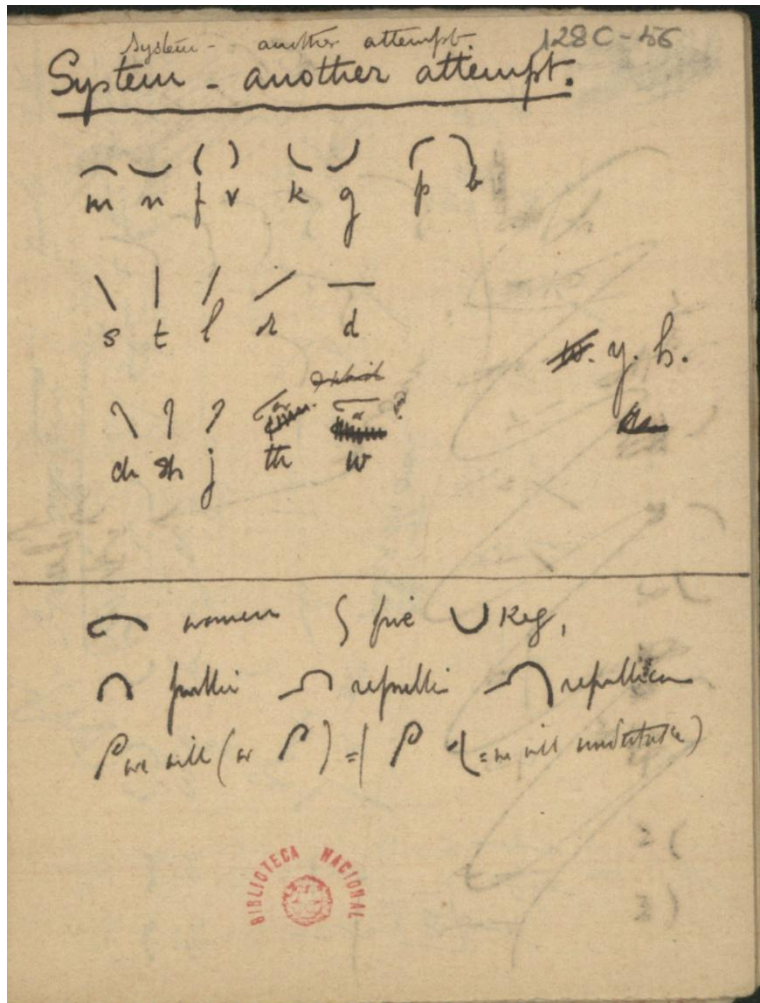 System - another attempt. 128C-56
System - another attempt.
m n f v k g p b
s t l r d
w. y. h.
ch sh j th w
women five Keg,
public republic republican
we will (or ) = ( = we will undertake)
BIBLIOTECA NACIONAL
2 (
3 )